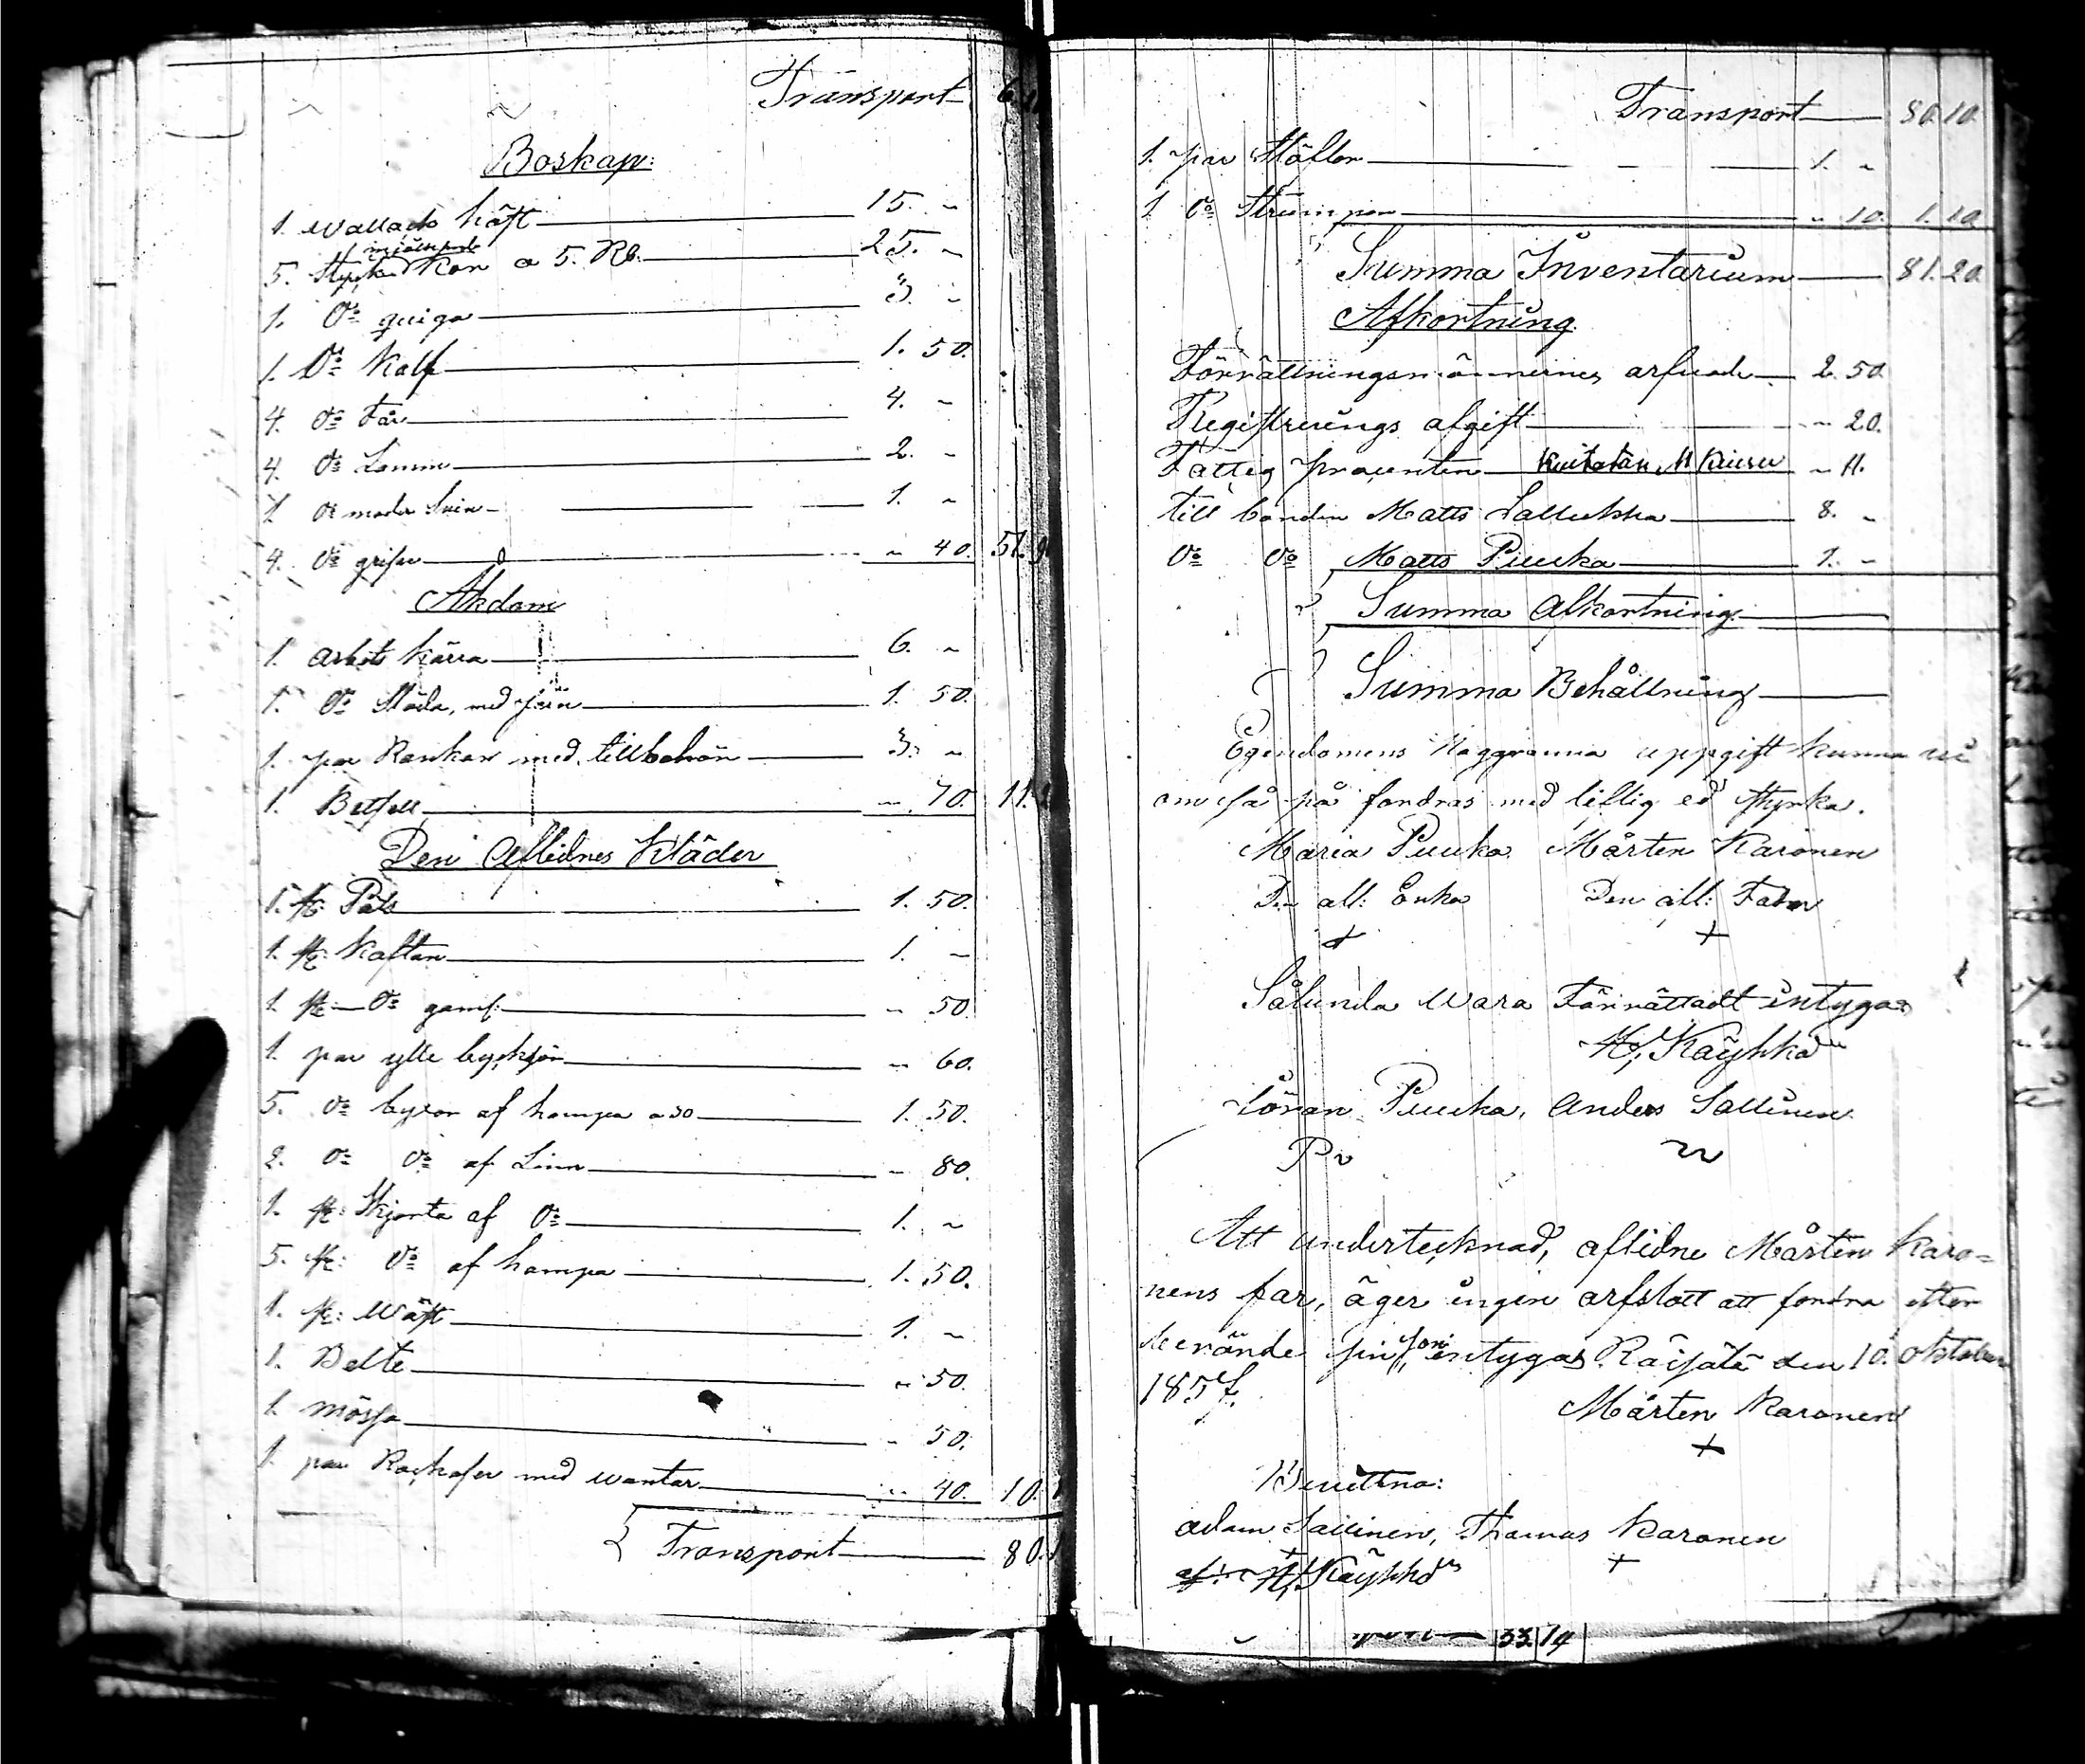 Transport 6.
Boskap:
1. wallack häst 15. "
5. Styck mjölkande Kor a 5. Rb. 25. "
1. Do quiga 3. "
1. Do Kalf 1. 50.
4. Do Får 4. "
4. Do Lamm 2. "
1 Do moder Svin 1. "
4. Do grisar " 40. 51. 90
Åkdom
1. arbets kärra 6. "
1. Do Släda, med järn 1. 50.
1. par Renkar med tillbehör 3. "
1. Betsell " 70. 11. 2
Den Aflidnes Kläder
1. st: Päls 1. 50.
1. st: Kaftan 1. "
1 st: Do gaml: " 50.
1. par ylle byxor " 60.
5. Do byxor af hampa a 30 1. 50.
2. Do Do af Linn " 80.
1. st: Skjorta af Do 1. "
5. st: Do af hampa 1. 50.
1. st: Wäst 1. "
1. Belte " 50.
1. mössa " 50.
1. par wantar " 40. 10.
Transport 80.
Transport 80. 10.
1. par Stöflor 1. "
1 Do Strumpor " 10. 1. 10
Summa Inventarium 81. 20.
Afkortning.
Förrättningsmännernes arfvode 2. 50.
Registrerings afgift " 20.
Fattig procenten " 11.
till bonden Matts Lallukka 8. "
Do Do Matts Puuka 1. "
Summa Afkortning
Summa Behållning
Egendomens Noggranna uppgift kunna vi
om så på fordras med liflig ed styrka.
Maria Puuka Mårten Karonen
Den afl: Enka Den afl: Fader
+ +
Sålunda wara Förrättadt intygar
H, Käyhkö
Göran Puukka, Anders Sallinen
Att undertecknad, aflidne Mårten Karo=
nens far, äger ingen arfslott att fordra efter
berände sin son intygas Räisälä den 10. Oktober
1857.
Mårten Karonen
+
Bevittna:
Adam Sallinen, Thomas Karonen
+ +
af: H, Käyhkö
33 14